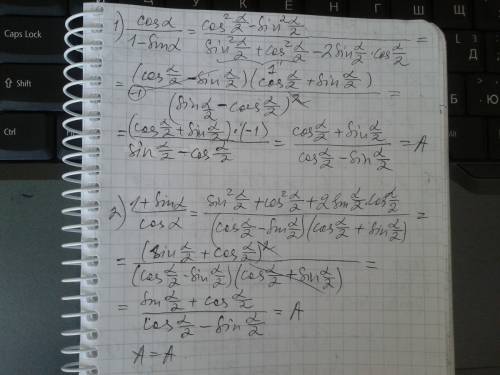 Caps Lock
Shift
Ctrl
Б
Ю
1) cosα/(1-sinα) = (cos²α/2 - sin²α/2)/(sin²α/2 + cos²α/2 - 2sinα/2·cosα/2) =
1
= (cosα/2 - sinα/2)(cosα/2 + sinα/2)/(sinα/2 - cosα/2)² =
-1
= (cosα/2 + sinα/2)·(-1)/(sinα/2 - cosα/2) = (cosα/2 + sinα/2)/(cosα/2 - sinα/2) = A
2) (1+sinα)/cosα = (sin²α/2 + cos²α/2 + 2sinα/2 cosα/2)/((cosα/2 - sinα/2)(cosα/2 + sinα/2)) =
= (sinα/2 + cosα/2)²/((cosα/2 - sinα/2)(cosα/2 + sinα/2)) =
= (sinα/2 + cosα/2)/(cosα/2 - sinα/2) = A
A = A